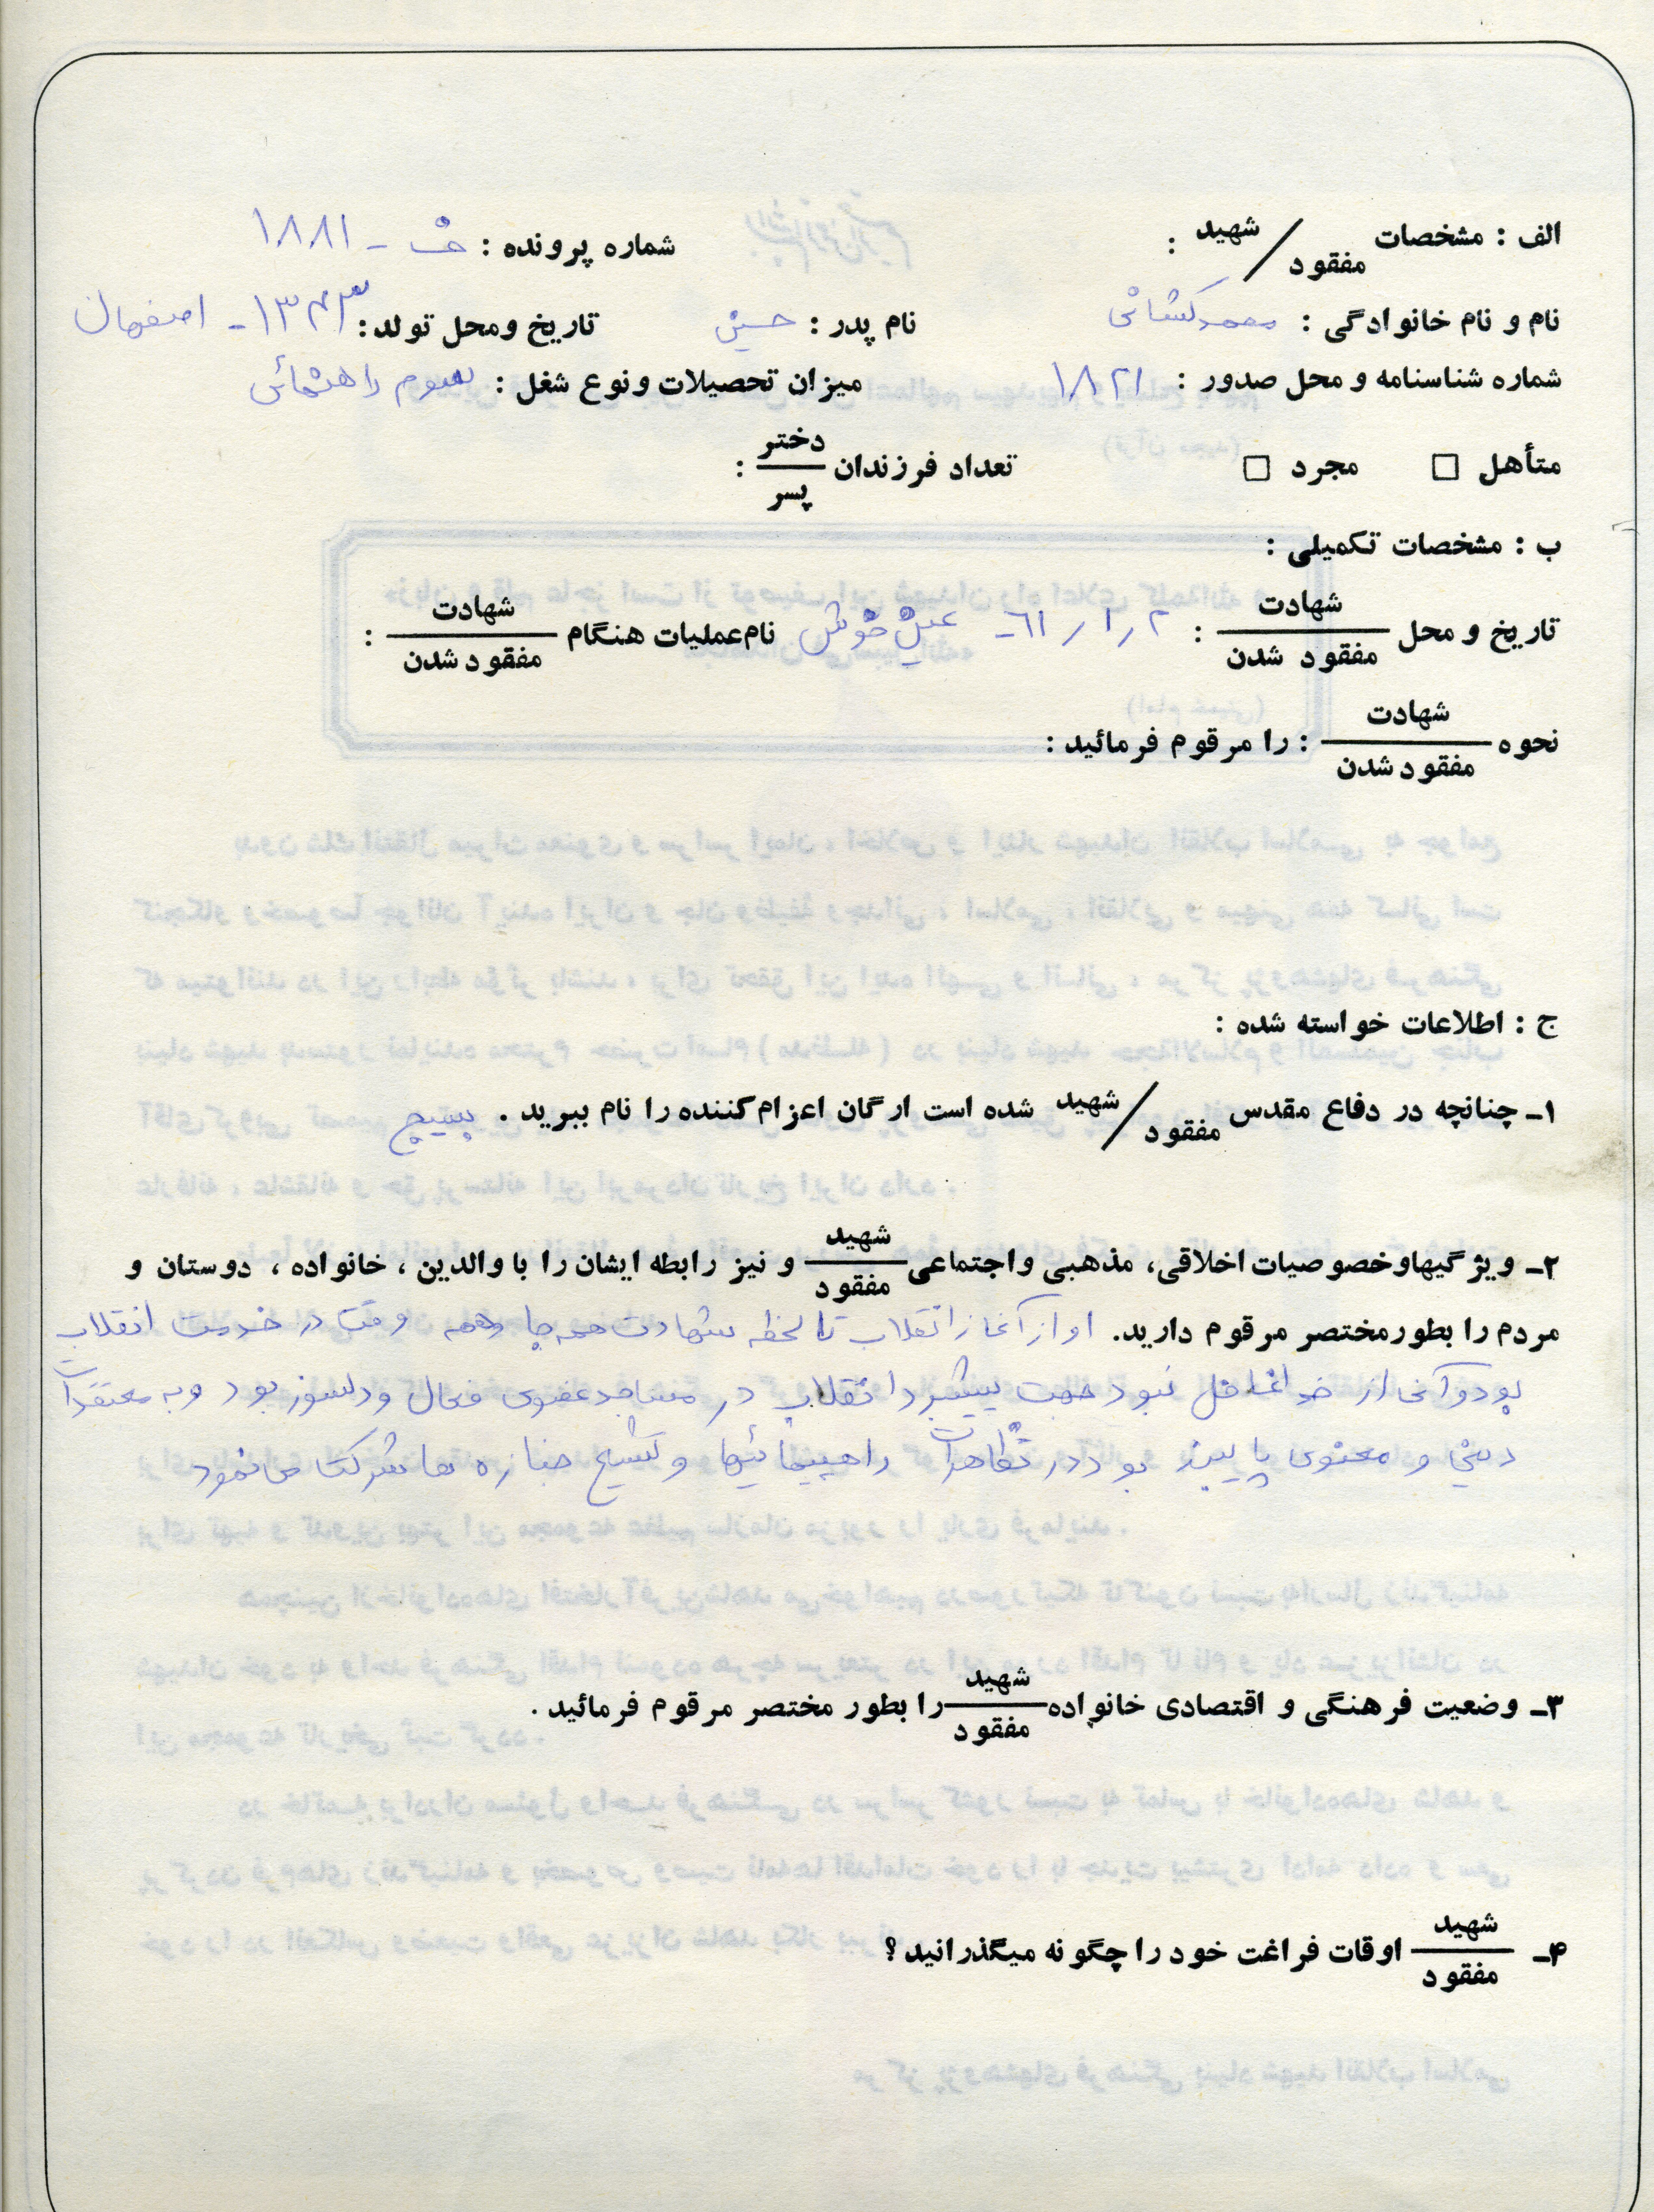 الف : مشخصات شهید / مفقود : شماره پرونده : ۱۸۸۱
نام و نام خانوادگی : محمد کاشانی نام پدر : حسین تاریخ ومحل تولد: ۱۳۴۳ - اصفهان
شماره شناسنامه و محل صدور : ۱۸۲۱ میزان تحصیلات ونوع شغل : سوم راهنمائی
متأهل □ مجرد □ تعداد فرزندان دختر / پسر :
ب : مشخصات تکمیلی :
تاریخ و محل شهادت / مفقود شدن : ۲ / ۱ / ۶۱ - عین خوش نام عملیات هنگام شهادت / مفقود شدن :
نحوه شهادت / مفقود شدن : را مرقوم فرمائید :
ج : اطلاعات خواسته شده :
۱ـ چنانچه در دفاع مقدس شهید / مفقود شده است ارگان اعزام کننده را نام ببرید . بسیج
۲ـ ویژگیهاوخصوصیات اخلاقی، مذهبی واجتماعی شهید / مفقود و نیز رابطه ایشان را با والدین ، خانواده ، دوستان و
مردم را بطورمختصر مرقوم دارید. او از آغاز انقلاب تا لحظه شهادت همه جا و همه وقت در خدمت انقلاب
بود و آنی از خدا غافل نبود جهت پیشبرد انقلاب در مساجد عضوی فعال و دلسوز بود و به معتقدات
دینی و معنوی پایبند بود در تظاهرات راهپیمائیها و تشییع جنازه ها شرکت می نمود
۳ـ وضعیت فرهنگی و اقتصادی خانواده شهید / مفقود را بطور مختصر مرقوم فرمائید .
۴ـ شهید / مفقود اوقات فراغت خود را چگونه میگذرانید ؟